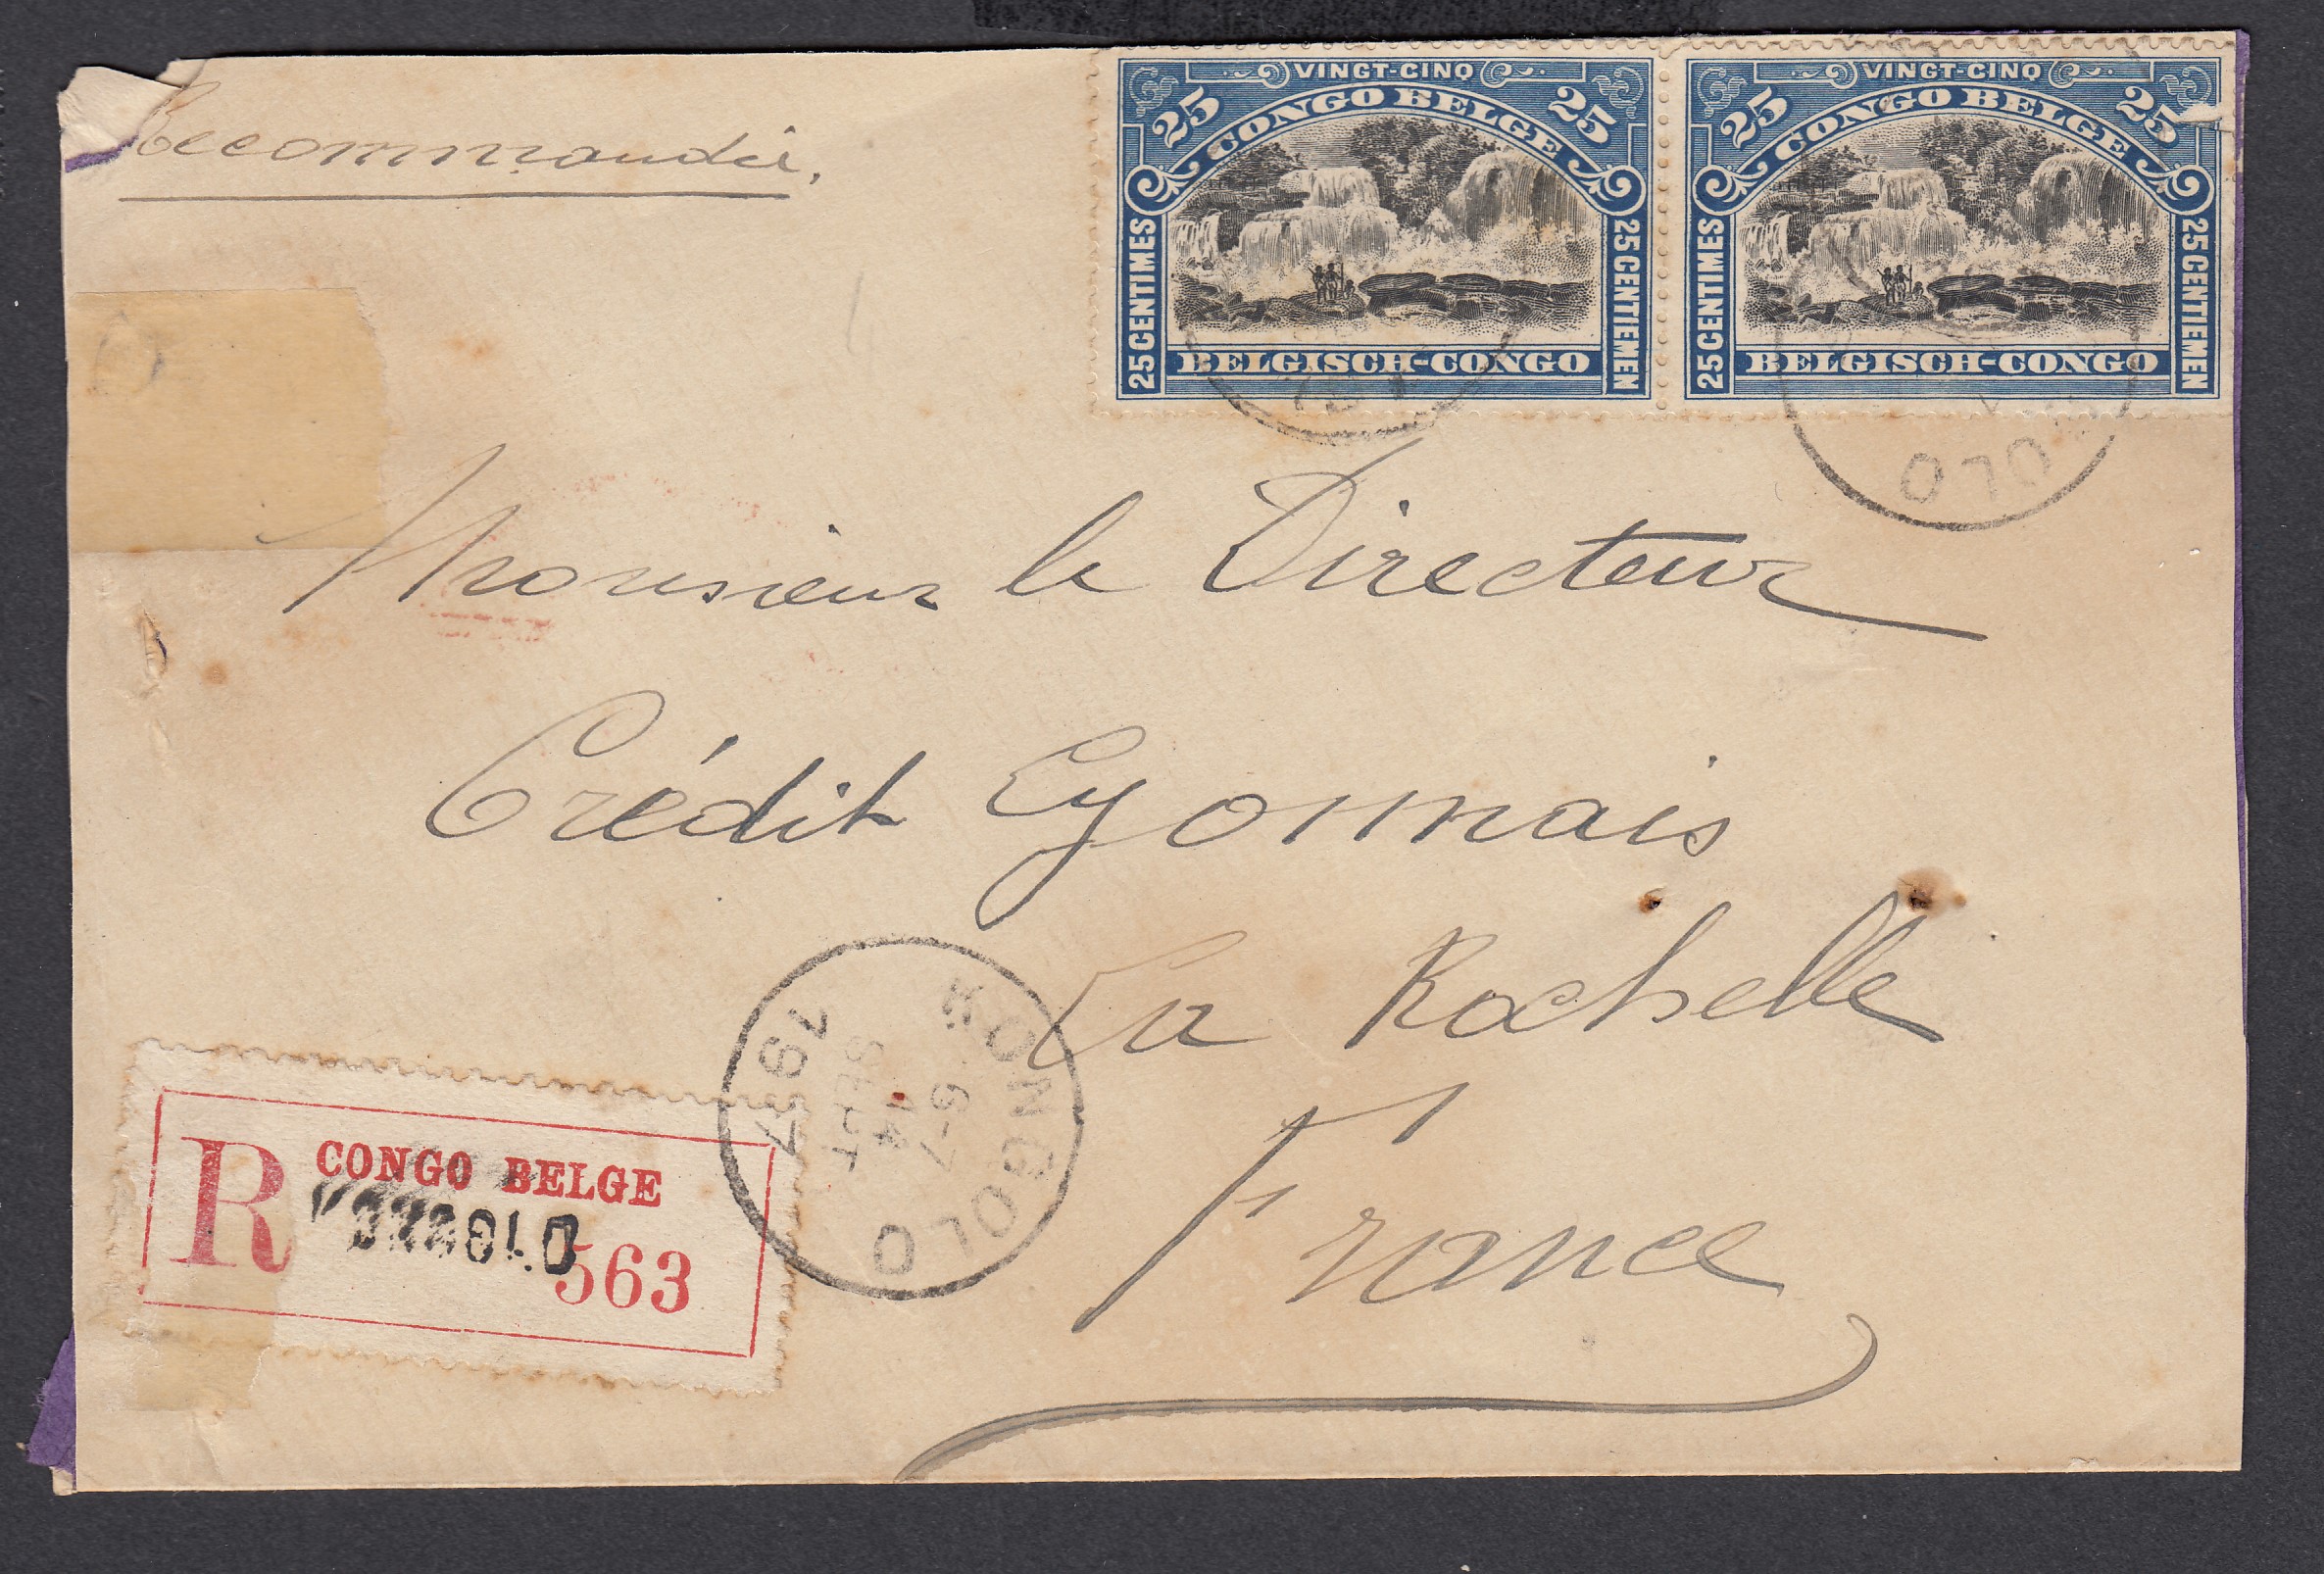 Recommandée,
VINGT-CINQ
25 25
CONGO BELGE
25 CENTIMES
25 CENTIEMEN
BELGISCH-CONGO
VINGT-CINQ
25 25
CONGO BELGE
25 CENTIMES
25 CENTIEMEN
BELGISCH-CONGO
OLO
Monsieur le Directeur
Crédit Lyonnais
La Rochelle
France
KONGOLO
6-7
14
SEPT
R
CONGO BELGE
KONGOLO
563